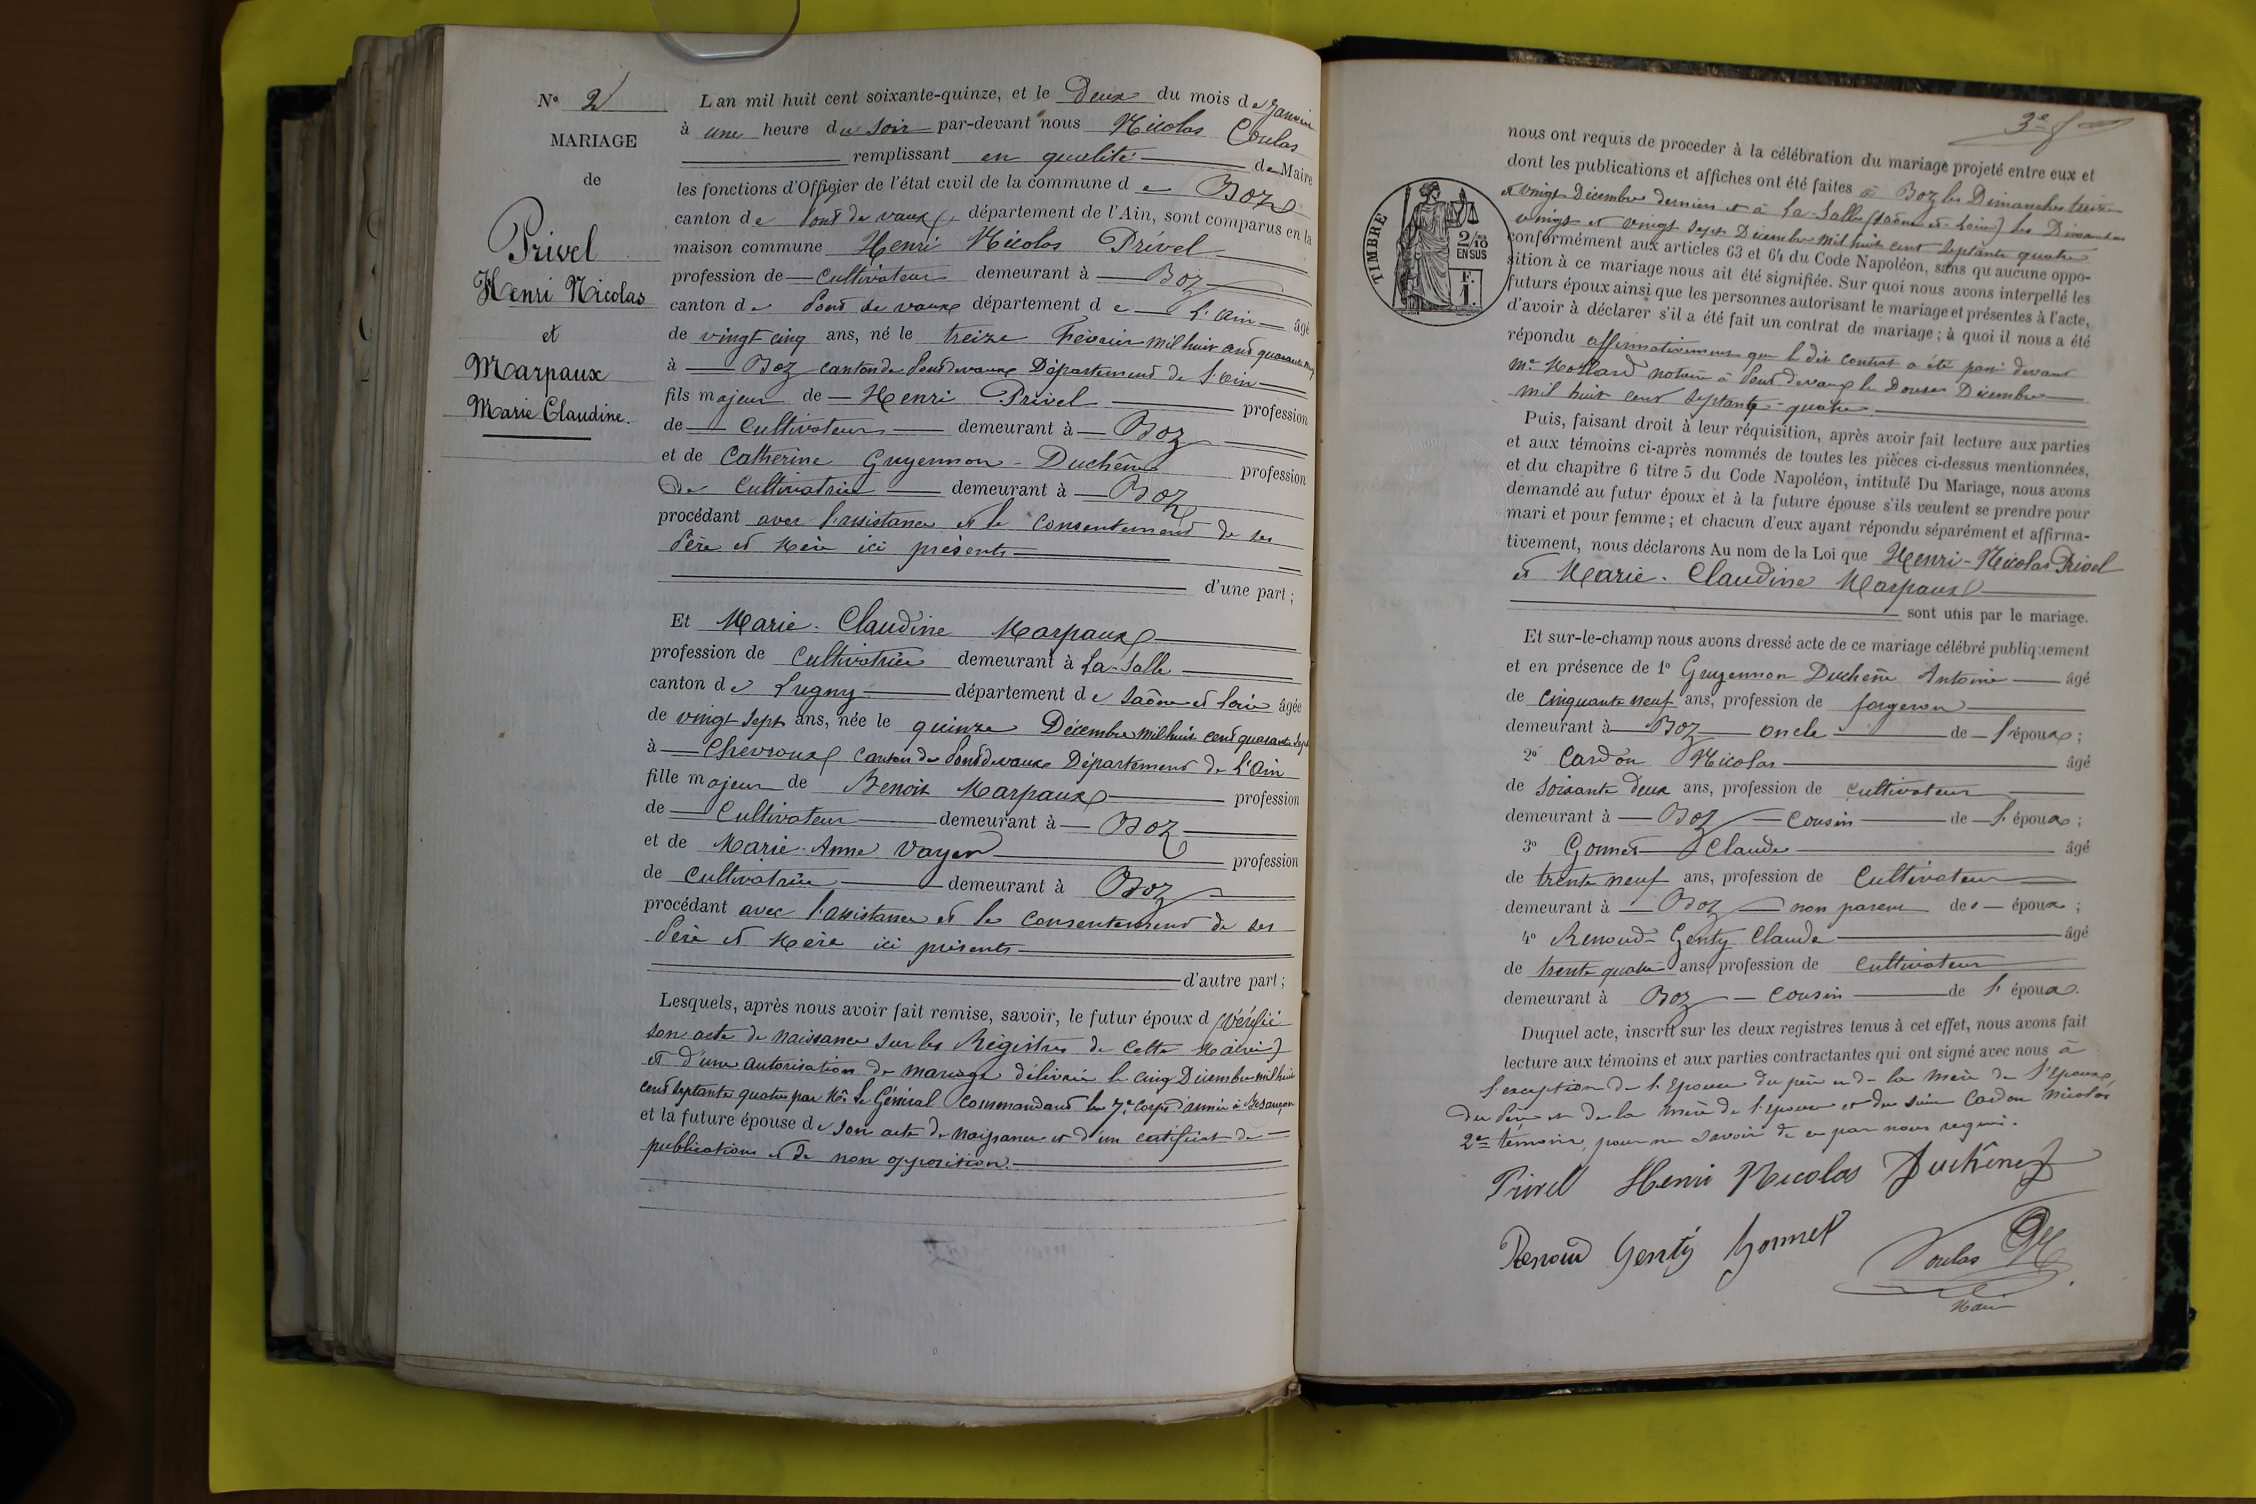 N° 2
MARIAGE
de
Privel
Henri Nicolas
et
Marpaux
Marie Claudine.
L'an mil huit cent soixante-quinze, et le Deux du mois de Janvier
à une heure du soir par-devant nous Nicolas Coulas
remplissant en qualité de Maire
les fonctions d'Officier de l'état civil de la commune de Boz
canton de Pont de vaux, département de l'Ain, sont comparus en la
maison commune Henri Nicolas Privel
profession de cultivateur demeurant à Boz
canton de Pont de vaux département de L'Ain âgé
de vingt cinq ans, né le treize Février mil huit cent quarante neuf
à Boz canton de Pont devaux Département de l'Ain
fils majeur de Henri Privel profession
de Cultivateur demeurant à Boz
et de Catherine Guyennon-Duchêne profession
de Cultivatrice demeurant à Boz
procédant avec l'assistance et le consentement de ses
Père et Mère ici présents
d'une part;
Et Marie-Claudine Marpaux
profession de Cultivatrice demeurant à La-Salle
canton de Lugny département de Saône et Loire âgée
de vingt sept ans, née le quinze Décembre mil huit cent quarante sept
à Chevroux canton de Pont devaux Département de L'Ain
fille majeur de Benoit Marpaux profession
de Cultivateur demeurant à Boz
et de Marie-Anne Vayer profession
de Cultivatrice demeurant à Boz
procédant avec l'assistance et le consentement de ses
Père et Mère ici présents
d'autre part;
Lesquels, après nous avoir fait remise, savoir, le futur époux d (Vérifié
son acte de naissance sur les Régistres de cette Mairie)
et d'une autorisation de mariage délivrée le cinq Décembre mil huit
cent septante quatre par Mr le Général Commandant le 7e Corps d'armée à Besançon
et la future épouse de son acte de naissance et d'un certificat de
publications et de non opposition.
3e f
TIMBRE
2/10
EN SUS
F.
1.
nous ont requis de proceder à la célébration du mariage projeté entre eux et
dont les publications et affiches ont été faites à Boz les Dimanches treize
et vingt Décembre derniers et à La-Salle (Saône et Loire) les Dimanches
vingt et vingt sept Décembre mil huit cent septante quatre
conformément aux articles 63 et 64 du Code Napoléon, sans qu'aucune oppo-
sition à ce mariage nous ait été signifiée. Sur quoi nous avons interpellé les
futurs époux ainsi que les personnes autorisant le mariage et présentes à l'acte,
d'avoir à déclarer s'il a été fait un contrat de mariage; à quoi il nous a été
répondu affirmativement que le dit contrat a été passé devant
Me notaire à Pont devaux le Douze Décembre
mil huit cent septante-quatre.
Puis, faisant droit à leur réquisition, après avoir fait lecture aux parties
et aux témoins ci-après nommés de toutes les pièces ci-dessus mentionnées,
et du chapitre 6 titre 5 du Code Napoléon, intitulé Du Mariage, nous avons
demandé au futur époux et à la future épouse s'ils veulent se prendre pour
mari et pour femme; et chacun d'eux ayant répondu séparément et affirma-
tivement, nous déclarons Au nom de la Loi que Henri-Nicolas Privel
et Marie-Claudine Marpaux
sont unis par le mariage.
Et sur-le-champ nous avons dressé acte de ce mariage célébré publiquement
et en présence de 1° Guyennon Duchêne Antoine âgé
de cinquante neuf ans, profession de forgeron
demeurant à Boz oncle de l'époux;
2° Cardon Nicolas âgé
de soixante deux ans, profession de cultivateur
demeurant à Boz cousin de l'époux;
3° Gonnet Claude âgé
de trente neuf ans, profession de Cultivateur
demeurant à Boz non parent des époux;
4° Renoud-Genty Claude âgé
de trente quatre ans, profession de Cultivateur
demeurant à Boz cousin de l'époux.
Duquel acte, inscrit sur les deux registres tenus à cet effet, nous avons fait
lecture aux témoins et aux parties contractantes qui ont signé avec nous à
l'exception de l'Epouse du père et de la mère de l'Epoux,
du Père et de la mère de l'epouse et du sieur Cardon Nicolas
2e témoin, pour ne savoir de ce par nous requis.
Privel Henri Nicolas Duchêne
Renoud Genty Gonnet
Coulas
Maire